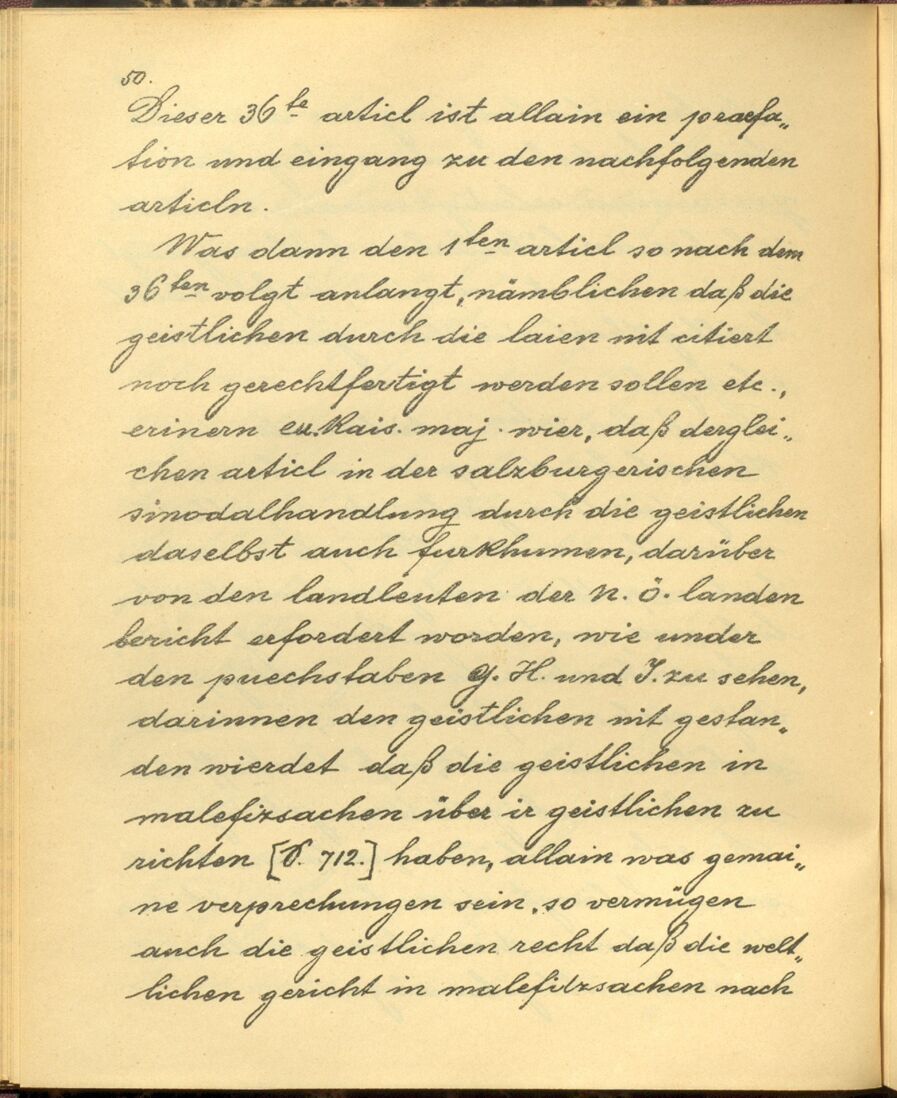 50.
Dieser 36te articl ist allain ein praefa„
tion und eingang zu den nachfolgenden
articln.
Was dann den 1ten articl so nach dem
36ten volgt anlangt, nämblichen daß die
geistlichen durch die laien nit citiert
noch gerechtfertigt werden sollen etc.,
erinern eu. Kais. maj. wier, daß derglei„
chen articl in der salzburgerischen
sinodalhandlung durch die geistlichen
daselbst auch furkhumen, darüber
von den landleuten der N. Ö. landen
bericht erfordert worden, wie under
den puechstaben G. H. und I. zu sehen,
darinnen den geistlichen nit gestan„
den wierdet daß die geistlichen in
malefizsachen über ir geistlichen zu
richten [S. 712.] haben, allain was gemai„
ne verprechungen sein, so vermügen
auch die geistlichen recht daß die welt„
lichen gericht in malefitzsachen nach